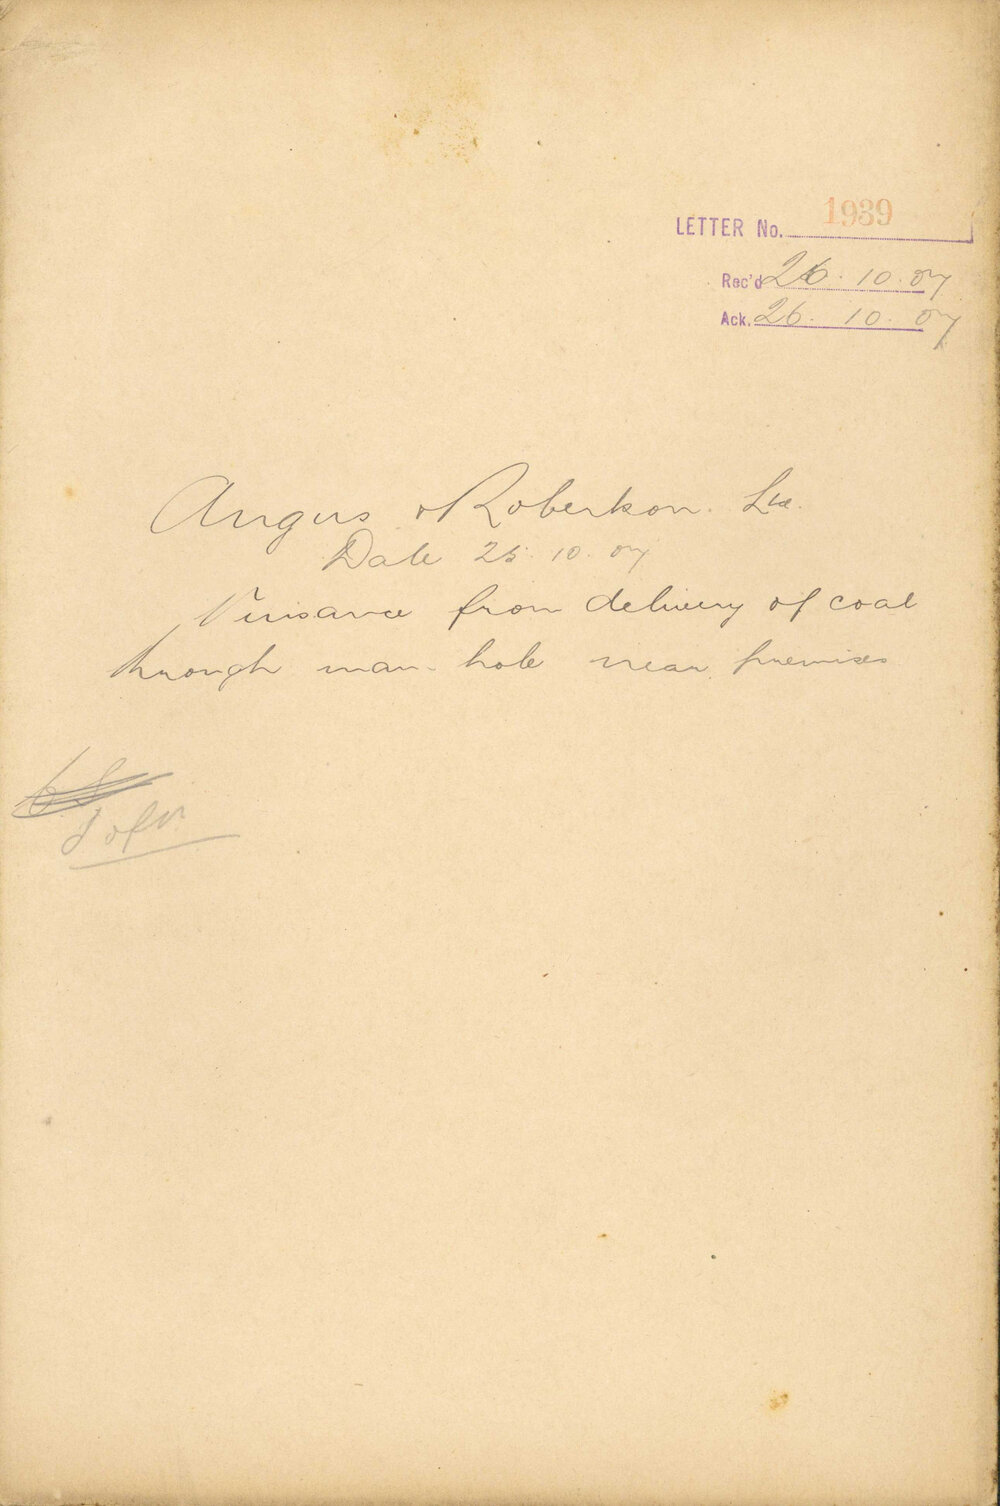 LETTER No. 1939
Rec'd 26. 10. 07
Ack. 26. 10. 07
Angus & Robertson. Ltd.
Date 25. 10. 07
Nuisance from delivery of coal
through man-hole near premises